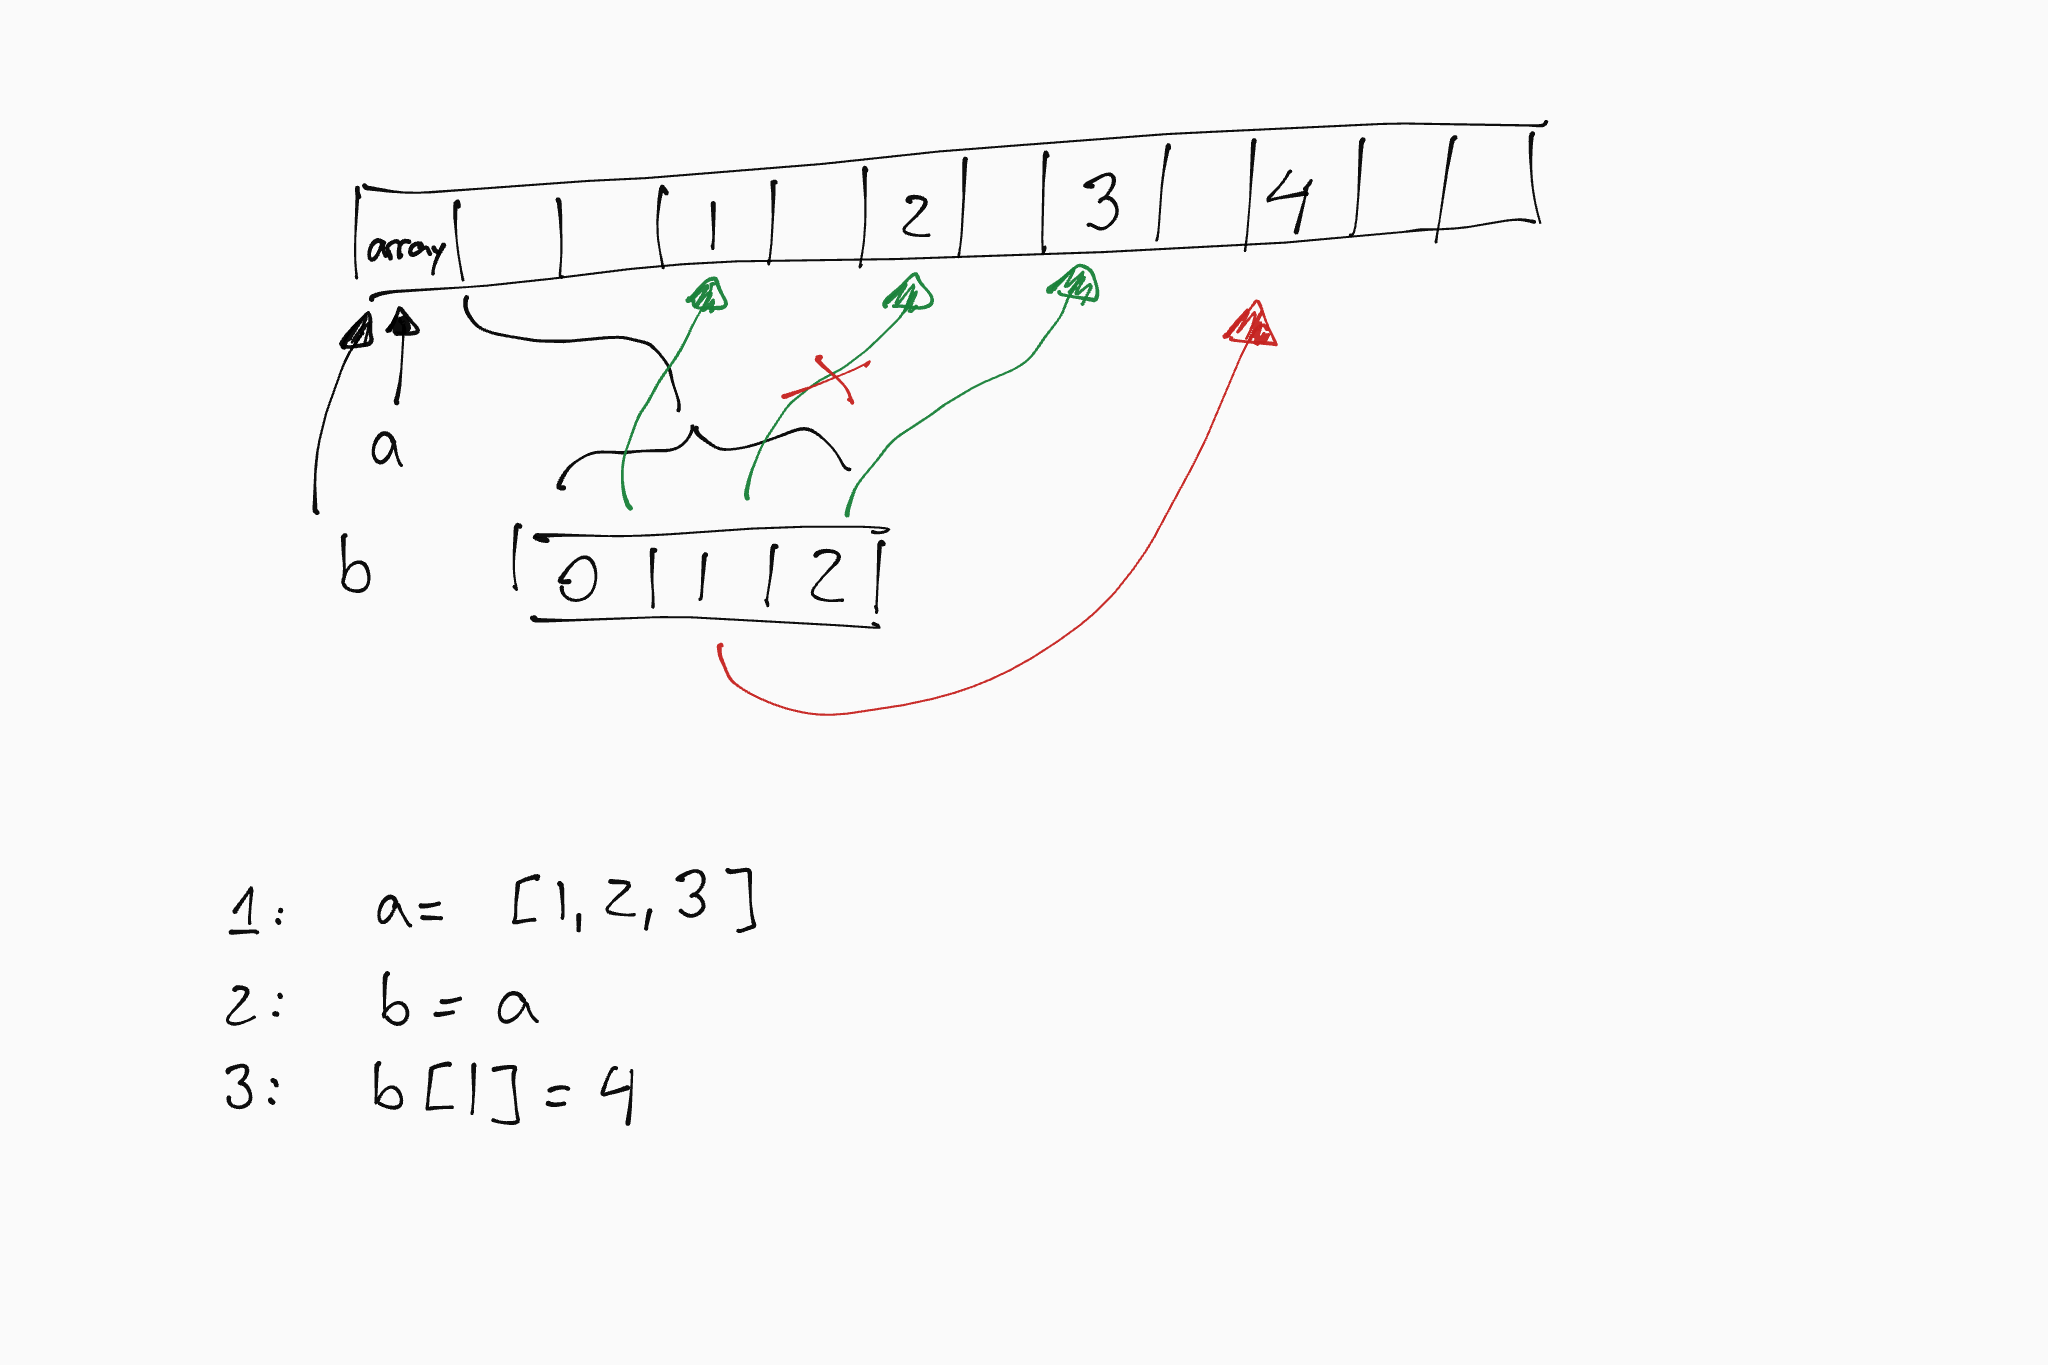 array 1 2 3 4
a
b
0 1 2
1: a= [1, 2, 3]
2: b = a
3: b[1] = 4